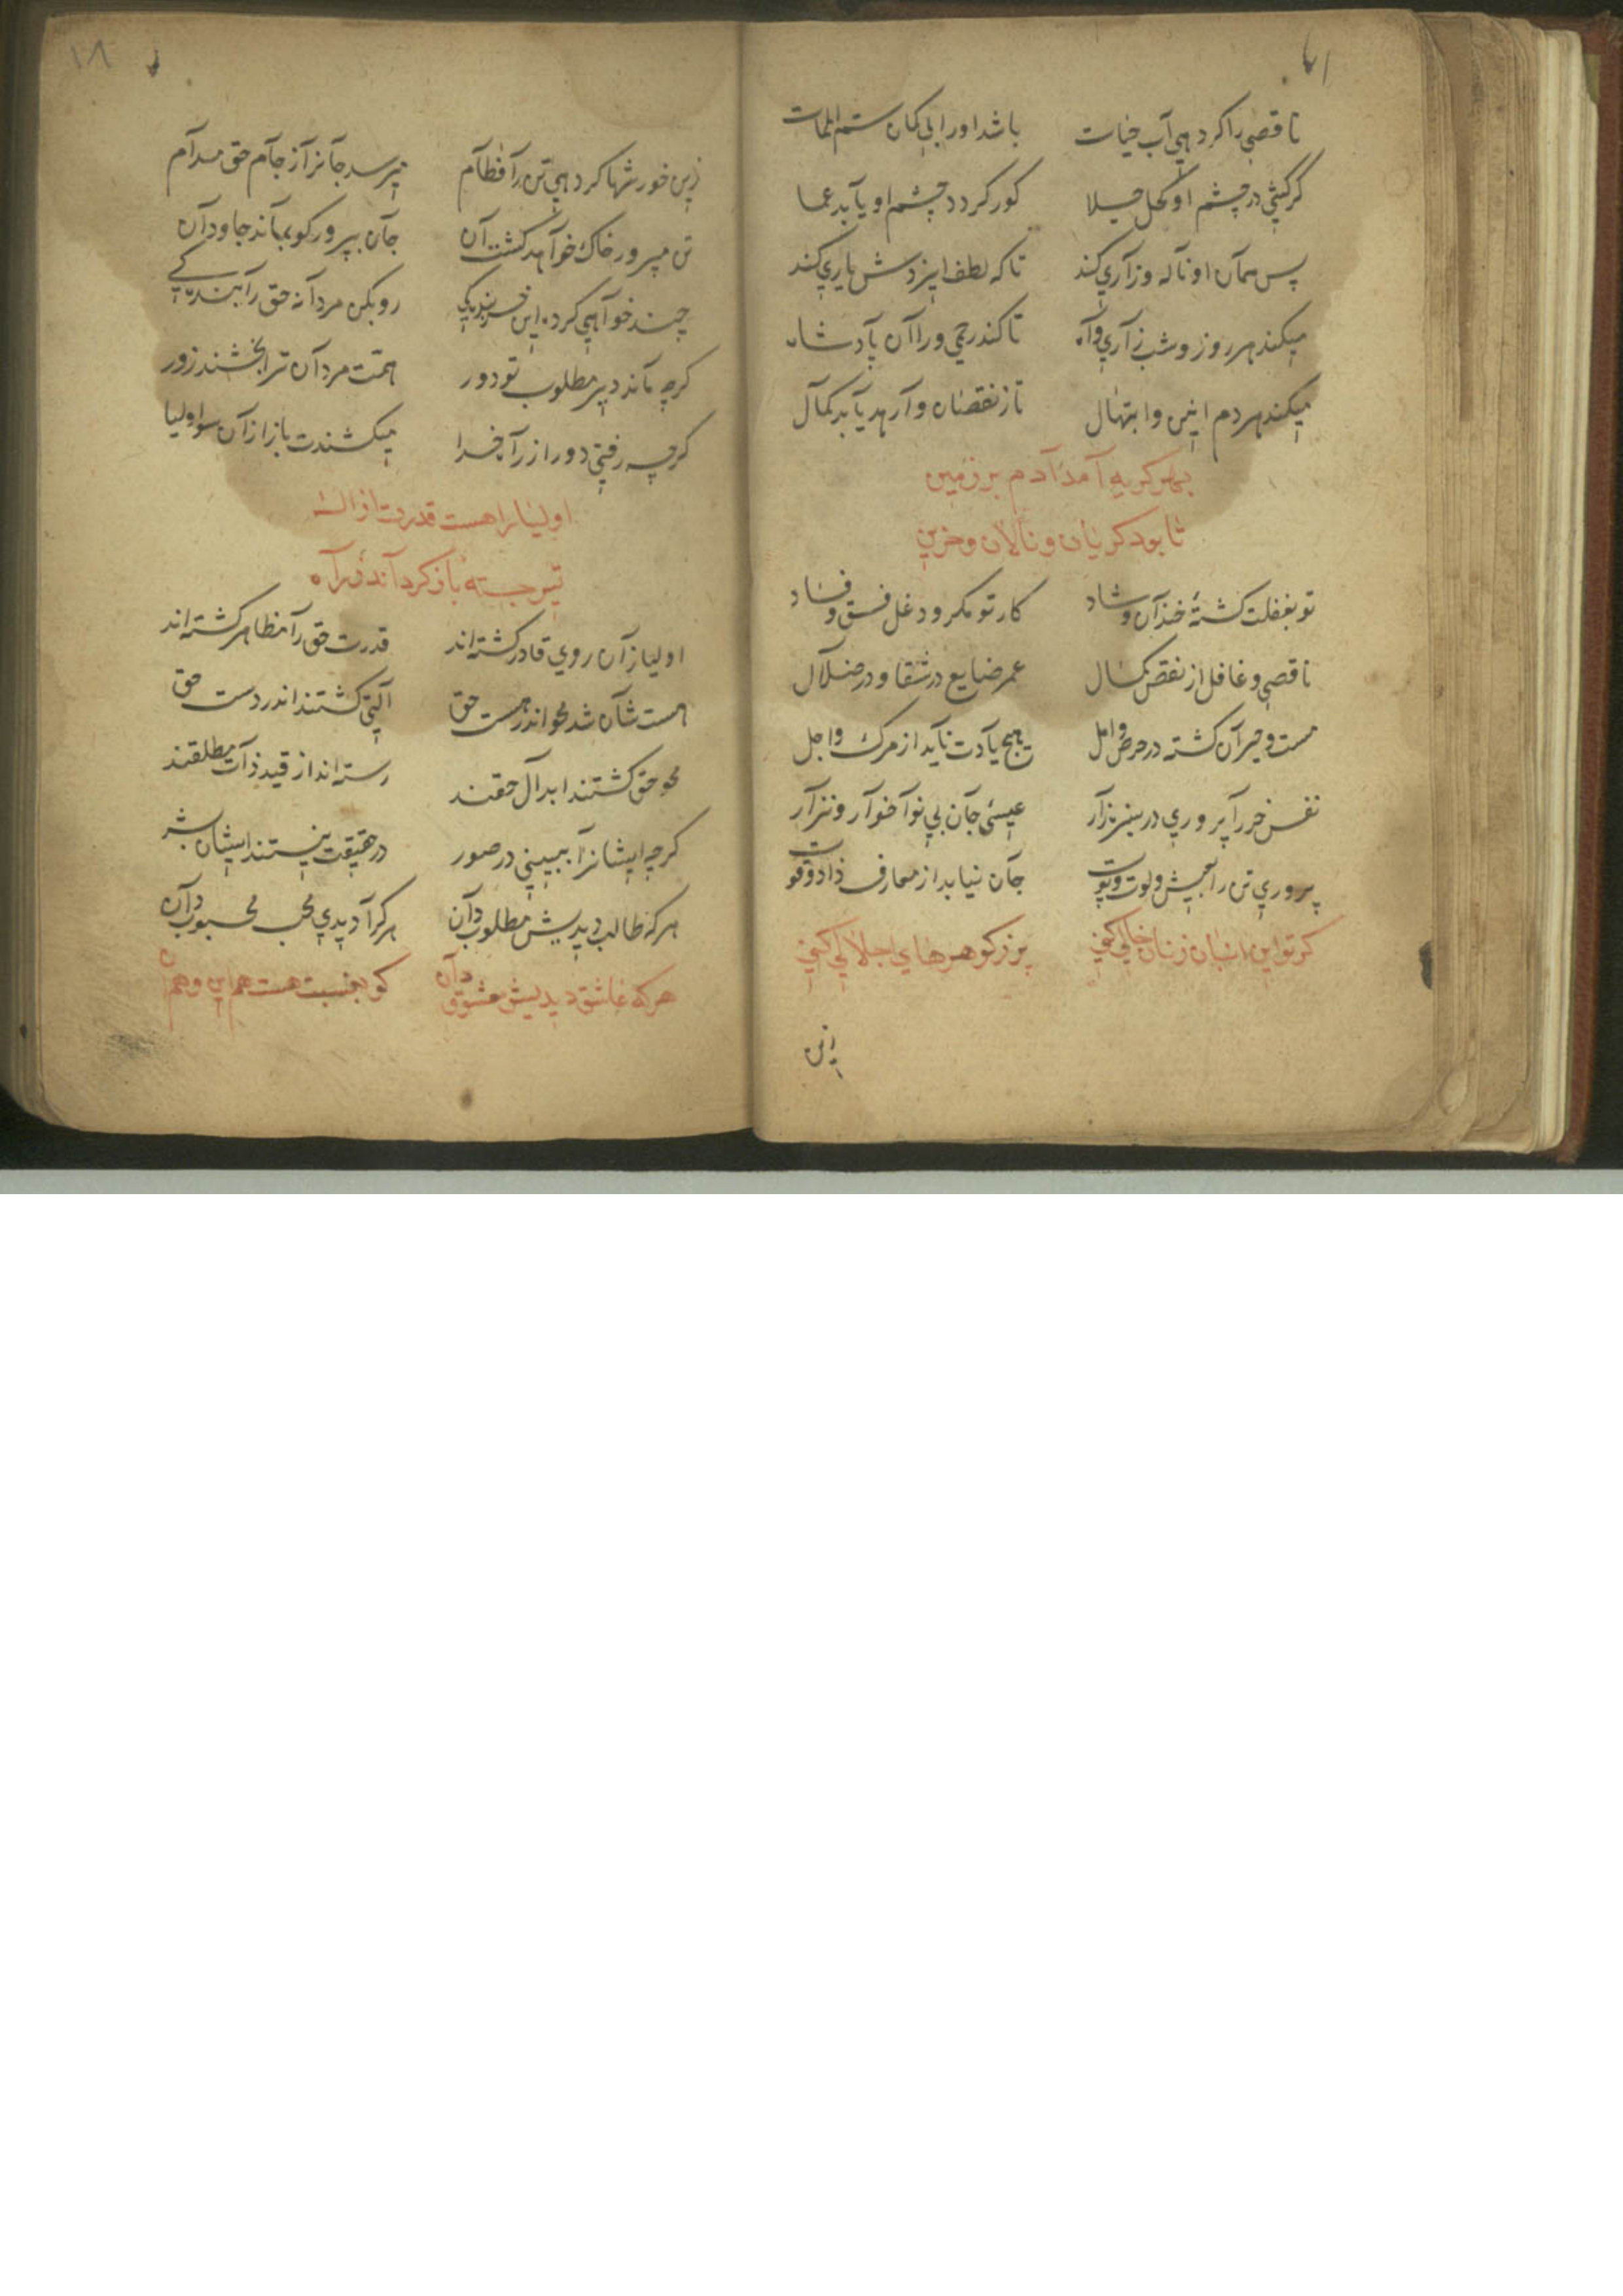 ناقصی را کر دهی آب حیات باشد او را بی کمان سم الممات
کر کشی در چشم او کحل جلا کور کردد چشم او یابد عما
پس همان او ناله و زاری کند تا که لطف ایزدش یاری کند
میکند هر روز و شب زاری و آه تا کند رحمی ورا آن پادشاه
میکند هر دم انین و ابتهال تا ز نقصان وارهد یابد کمال
بهر کریه آمد آدم بر زمین
تا بود کریان و نالان و حزین
تو بغفلت کشتۀ خندان و شاد کار تو مکر و دغل فسق و فساد
ناقصی و غافل از نقص کمال عمر ضایع در شقا و در ضلال
مست و حیران کشته در حرص و امل هیچ یادت ناید از مرک و اجل
نفس خر را پروری در سبزه‌زار عیسئ جان بی نوا خوار و نزار
پروری تن را بعیش و لوت و پوت جان نیابد از معارف زاد و قوت
کر تو این انبان ز نان خالی کنی پر ز کوهرهای اجلالی کنی
این
۱۸
زین خورشها کر دهی تن را فطام میرسد جانرا ز جام حق مدام
تن مپرور خاک خواهد کشت آن جان بپرور کو بماند جاودان
چند خواهی کرد این خربندکی رو بکن مردانه حق را بندکی
کرچه ماند دیر مطلوب تو دور همت مردان ترا بخشند زور
کرچه رفتی دور از راه خدا میکشندت باز از آن سو اولیا
اولیا را هست قدرت از اله
تیر جسته باز کردانند ز راه
اولیا زان روی قادر کشته‌اند قدرت حق را مظاهر کشته‌اند
هست شان شد محو اندر هست حق آلتی کشتند اندر دست حق
محو حق کشتند ابدال حقند رسته‌اند از قید ذات مطلقند
کرچه ایشانرا ببینی در صور در حقیقت نیستند ایشان بشر
هر که طالب دیدیش مطلوب دان هر کرا دیدی محب محبوب دان
هر که عاشق دیدیش معشوق دان کو بنسبت هست هم این و هم آن